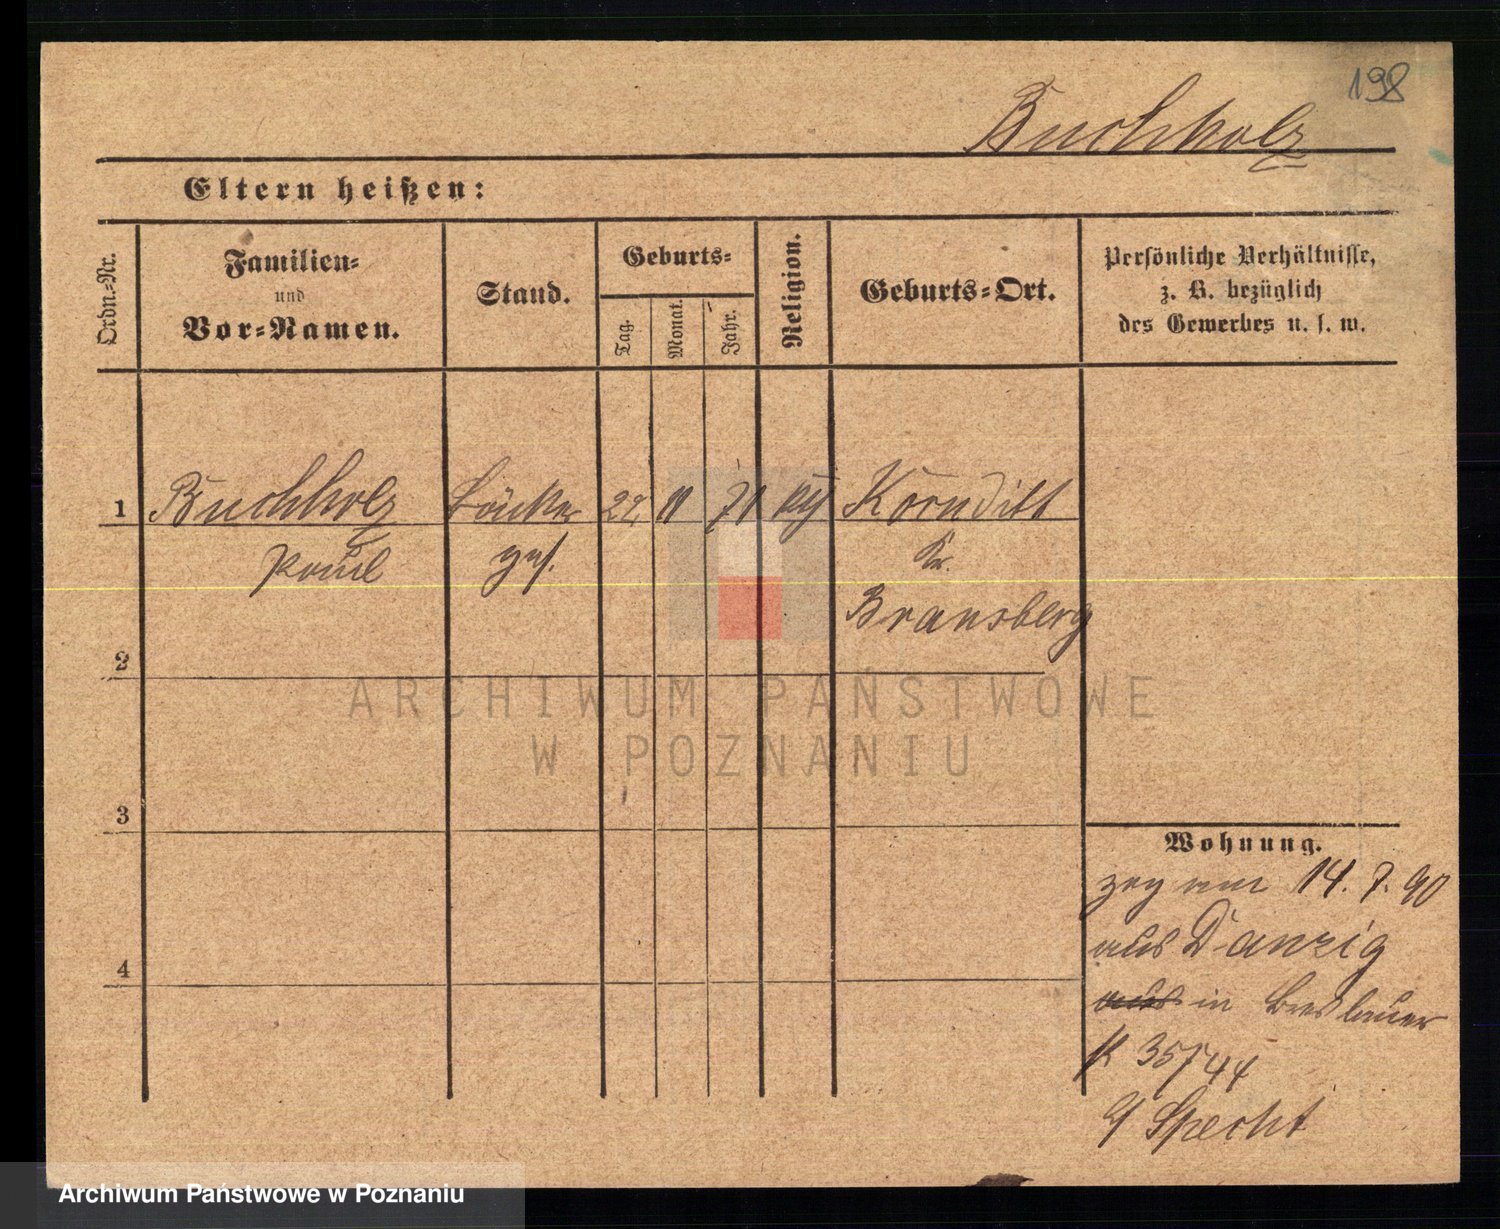 198
Buchholz
Eltern heißen:
Ordn.-Nr.
Familien-
und
Vor-Namen.
Stand.
Geburts-
Tag.
Monat.
Jahr.
Religion.
Geburts-Ort.
Persönliche Verhältnisse,
z. B. bezüglich
des Gewerbes u. s. w.
1 Buchholz Bäcker 22 11 71 Kornditt
Paul ges. Kr.
Bransberg
2
3
4
Wohnung.
zog am 14. 7. 90
aus Danzig
aus in Breslauer
35/44
b/ Specht
ARCHIWUM PAŃSTWOWE
W POZNANIU
Archiwum Państwowe w Poznaniu